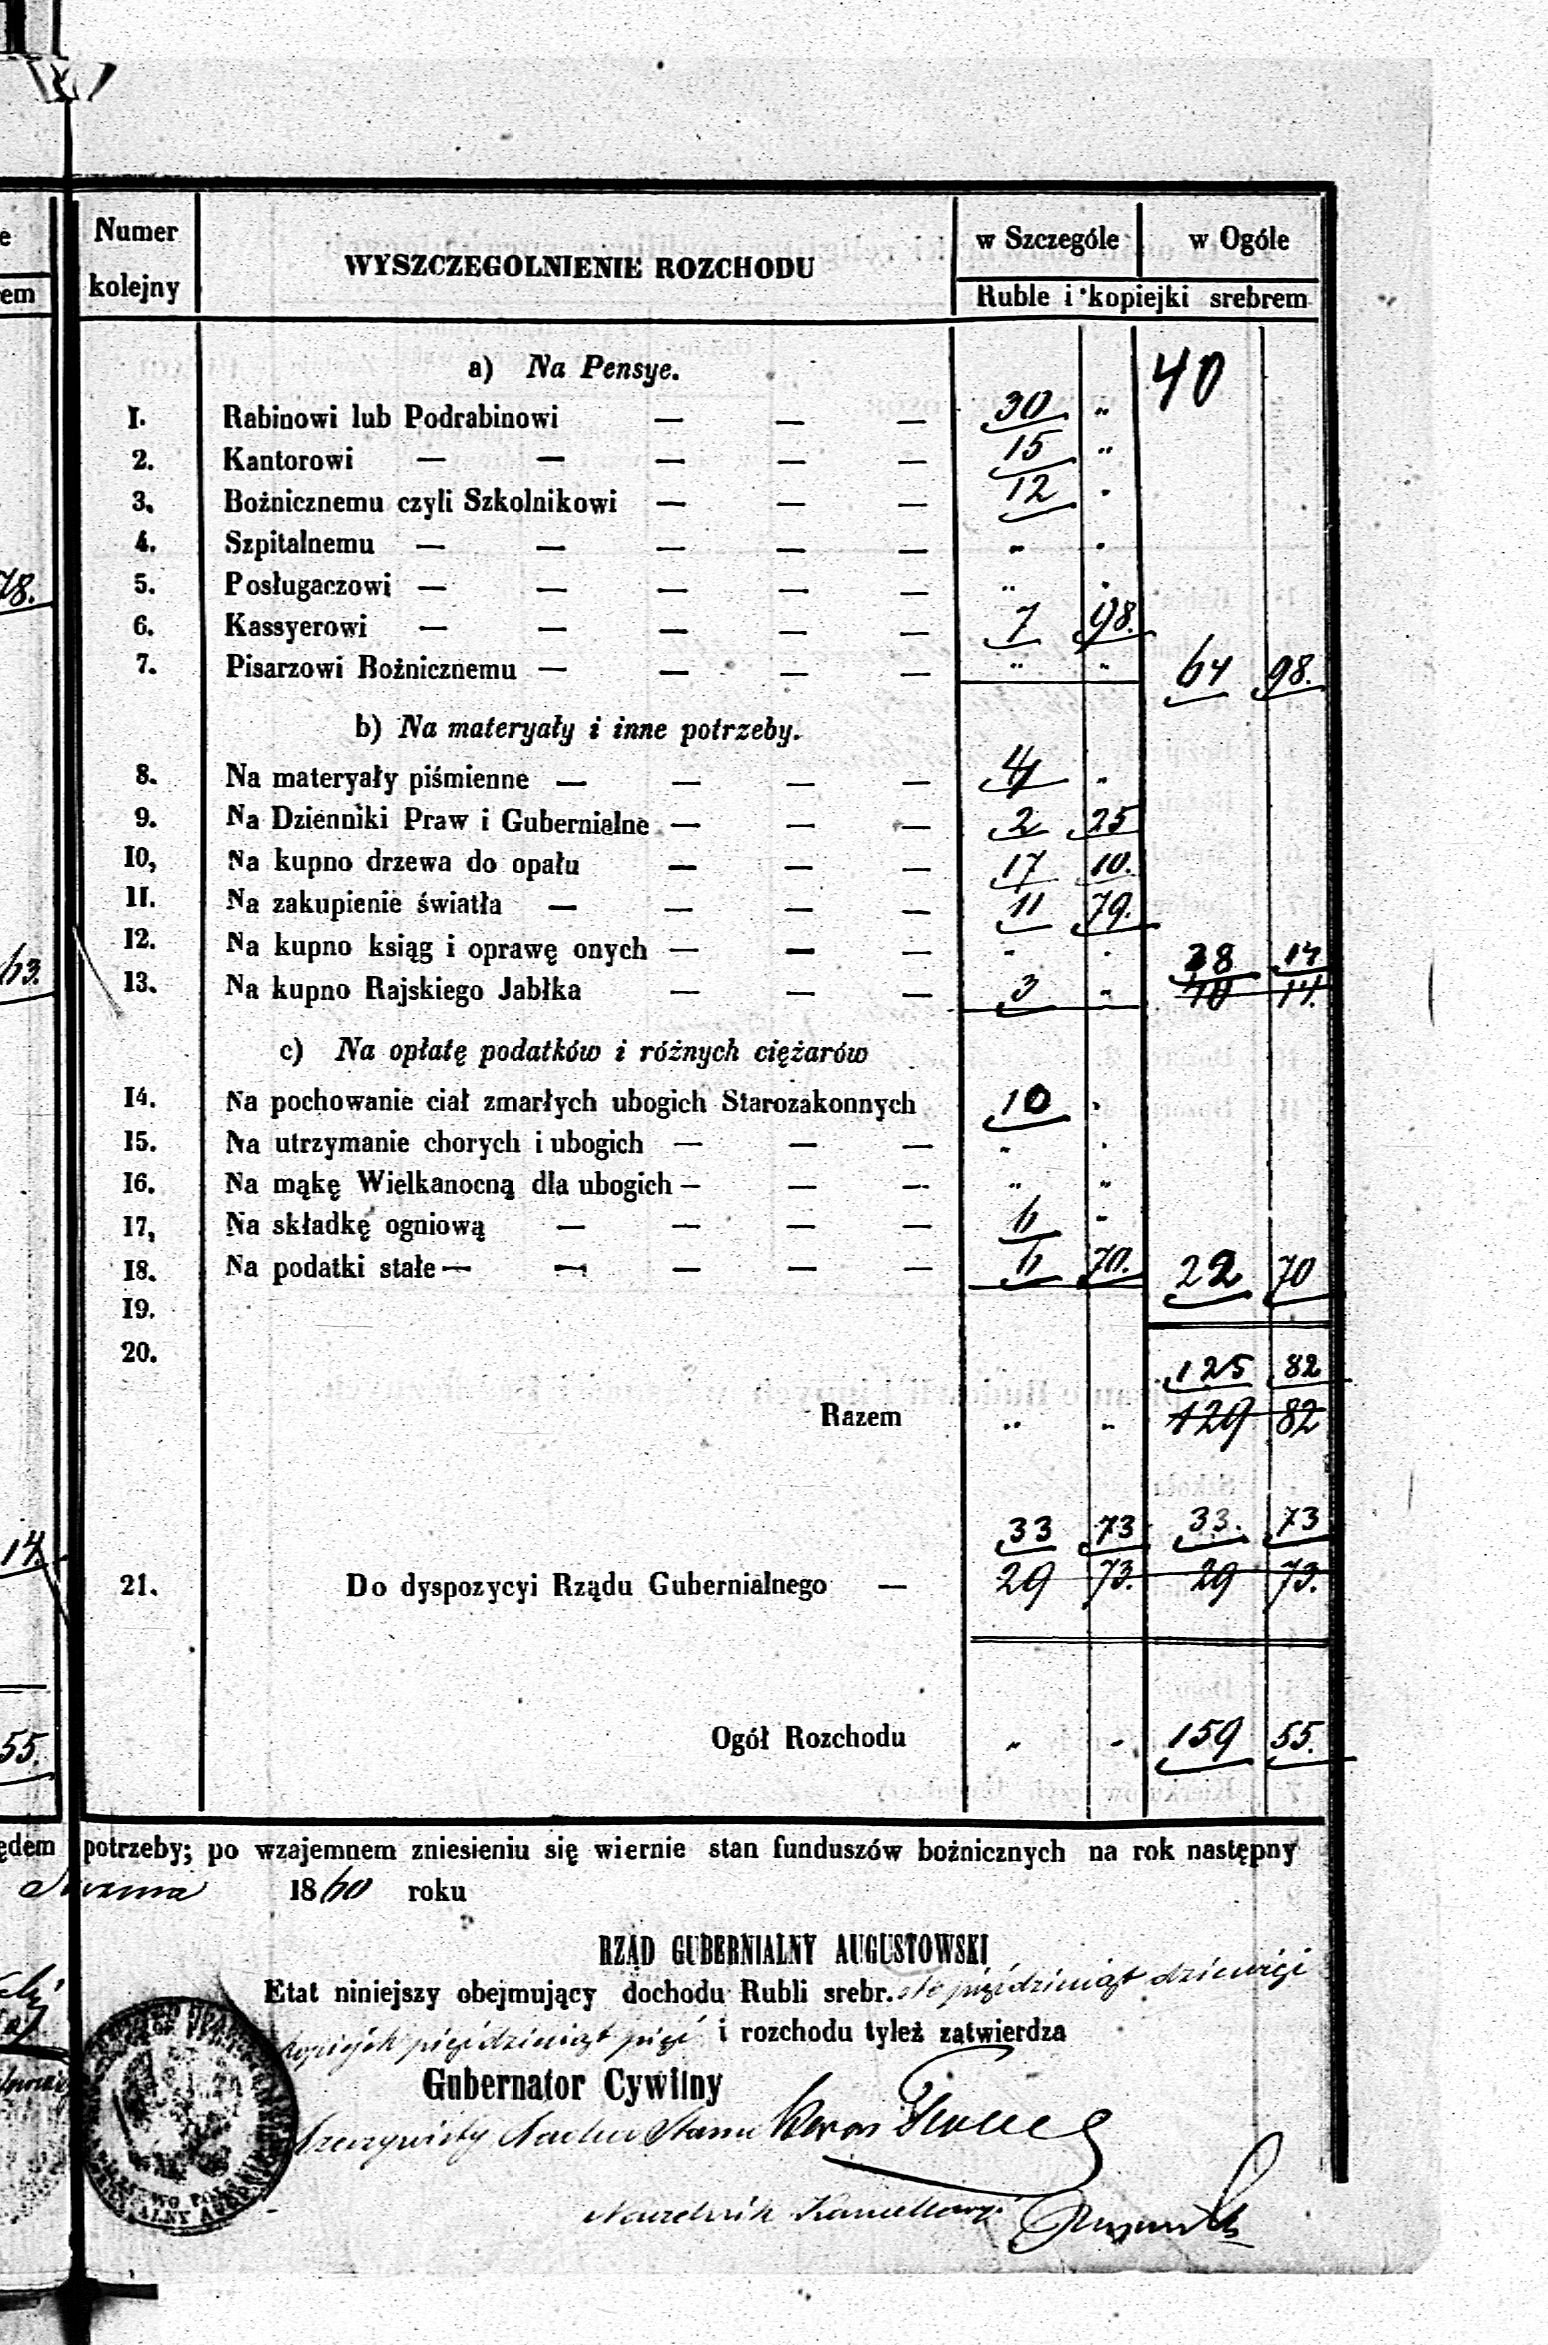 Numer kolejny WYSZCZEGOLNIENIE ROZCHODU w Szczególe w Ogóle
Ruble i kopiejki srebrem
a) Na Pensye. 40
1. Rabinowi lub Podrabinowi — — — 30 „
2. Kantorowi — — — — — 15 „
3. Bożnicznemu czyli Szkolnikowi — — — 12 „
4. Szpitalnemu — — — — — „ „
78. 5. Posługaczowi — — — — — „ „
6. Kassyerowi — — — — — 7 98.
7. Pisarzowi Bożnicznemu — — — — „ „ 64 98.
b) Na materyały i inne potrzeby.
8. Na materyały piśmienne — — — — 4 „
9. Na Dzienniki Praw i Gubernialne — — — 2 25
10, Na kupno drzewa do opału — — — 17 10.
11. Na zakupienie światła — — — — 11 79.
63. 12. Na kupno ksiąg i oprawę onych — — — „ „ 38 14
13. Na kupno Rajskiego Jabłka — — — 3 „ 14.
c) Na opłatę podatków i różnych ciężarów
14. Na pochowanie ciał zmarłych ubogich Starozakonnych 10 „
15. Na utrzymanie chorych i ubogich — — — „ „
16. Na mąkę Wielkanocną dla ubogich — — — „ „
17, Na składkę ogniową — — — — 6 „
18. Na podatki stałe — — — — — 6 70. 22 70
19.
20.
125 82
Razem „ „ 129 82
33 73 33. 73
14
21. Do dyspozycyi Rządu Gubernialnego — 29 73. 29 73.
55. Ogół Rozchodu „ „ 159 55.
potrzeby; po wzajemnem zniesieniu się wiernie stan funduszów bożnicznych na rok następny
1860 roku
RZĄD GUBERNIALNY AUGUSTOWSKI
Etat niniejszy obejmujący dochodu Rubli srebr. sto pięćdziesiąt dziewięć
kopiejek pięćdziesiąt pięć i rozchodu tyleż zatwierdza
Gubernator Cywilny
Rzeczywisty Radca Stanu
Naczelnik Kancellaryi